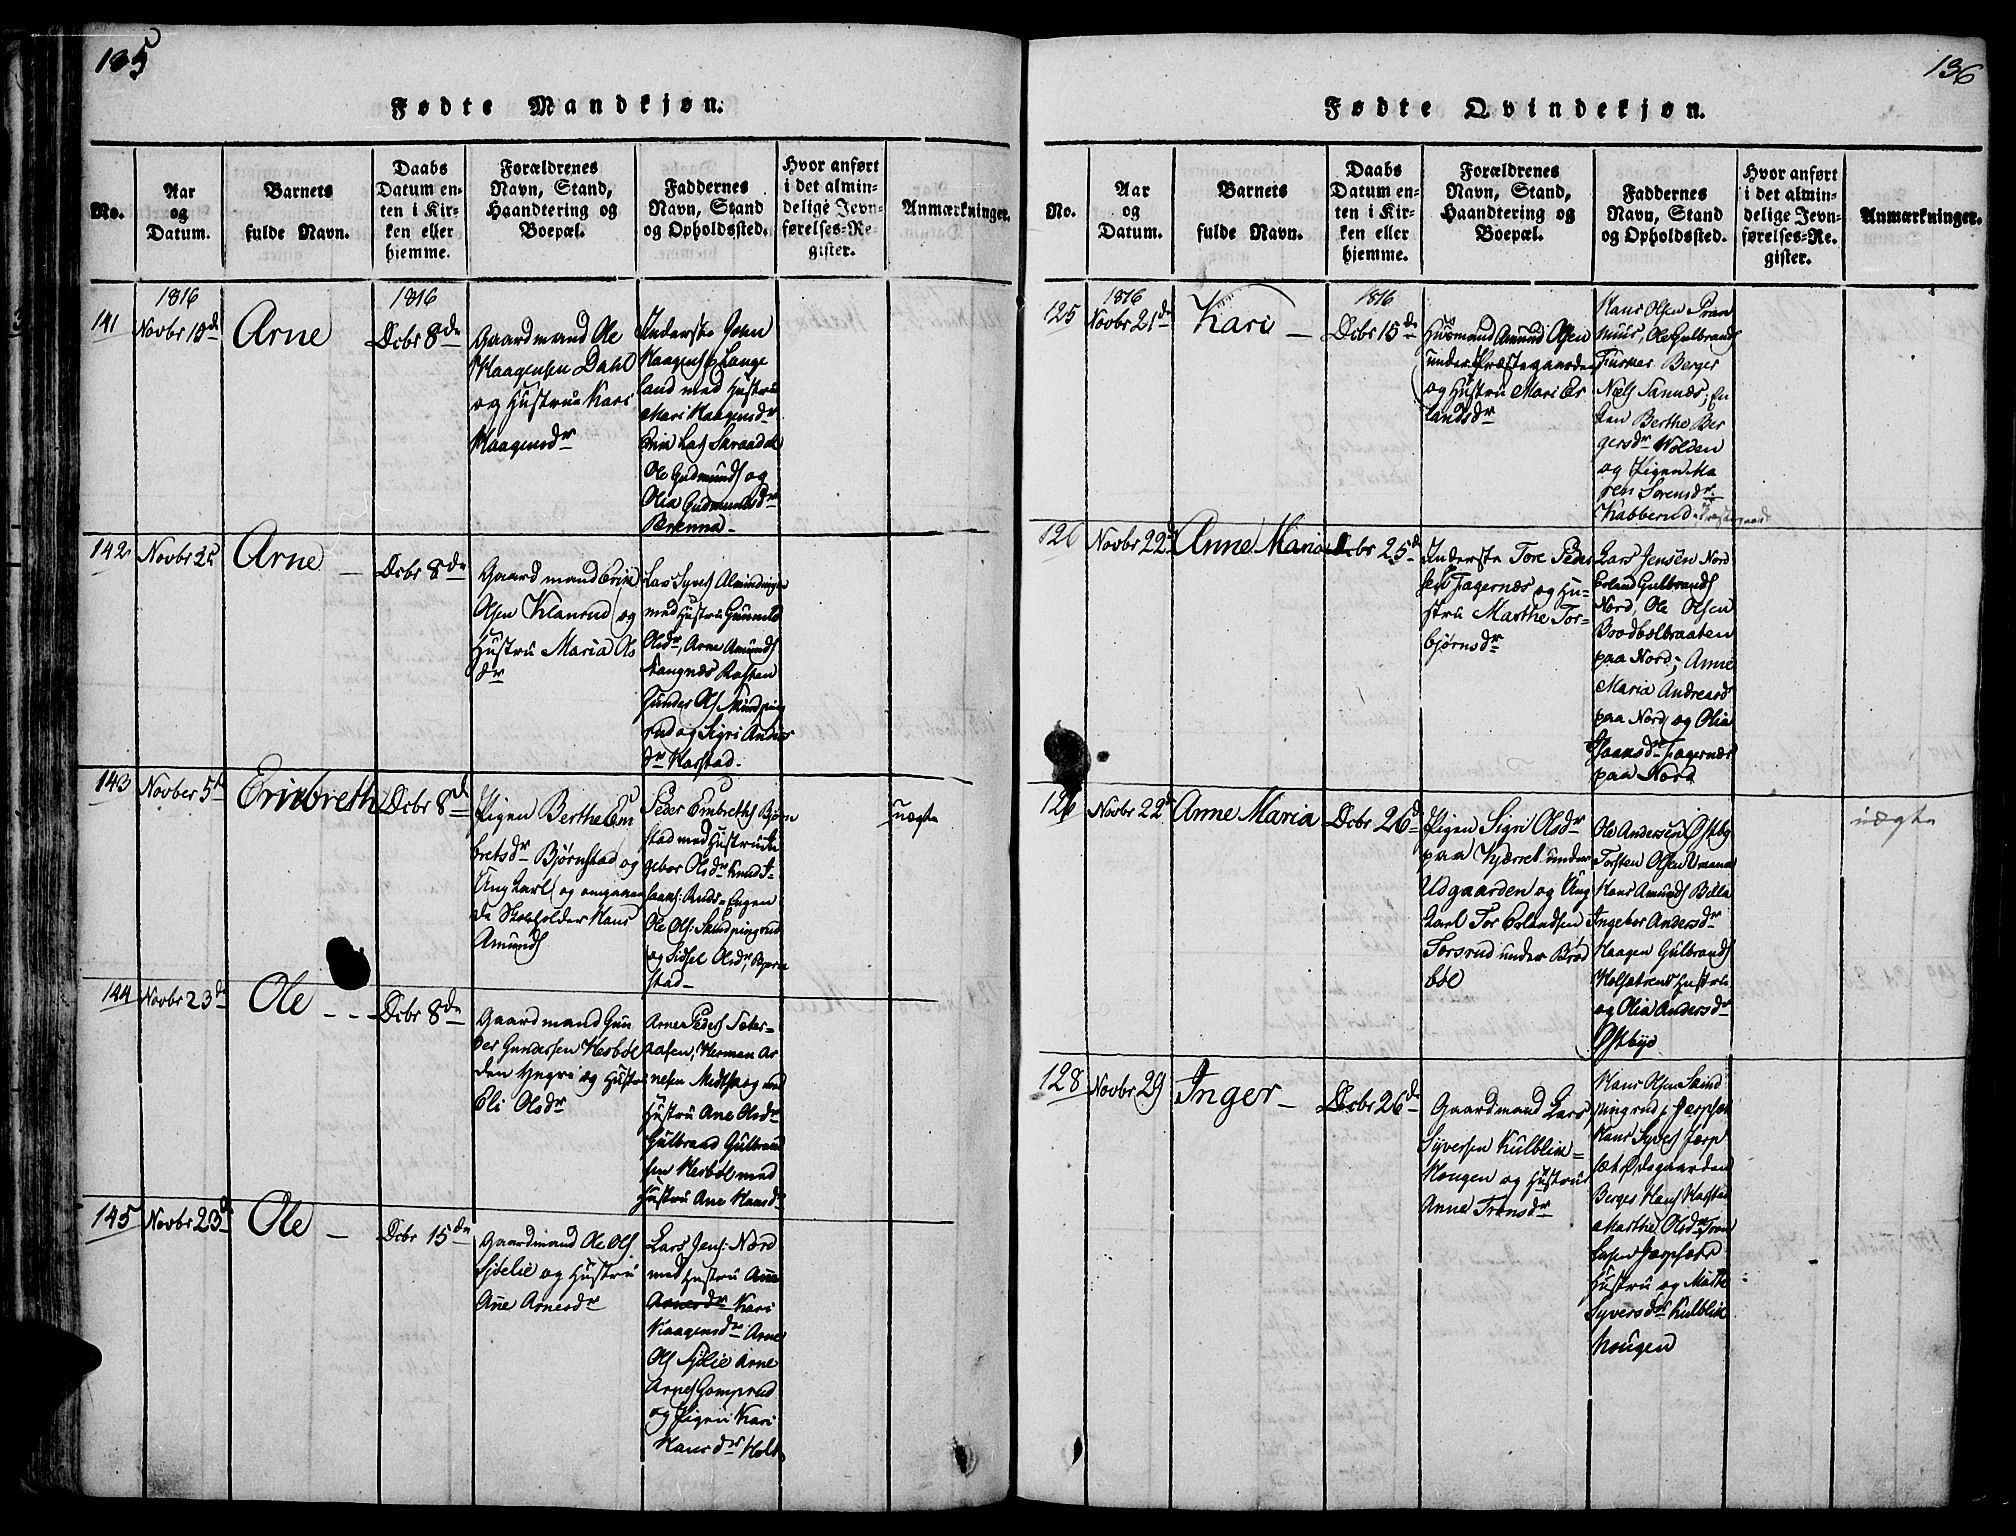 135
Fødte Mandkjøn.
No.
Aar
og
Datum.
Barnets
fulde Navn.
Daabs
Datum en-
ten i Kir-
ken eller
hjemme.
Forældrenes
Navn, Stand,
Haandtering og
Boepæl.
Faddernes
Navn, Stand
og Opholdssted.
Hvor anført
i det almin-
delige Jevn-
førelses-Re-
gister.
Anmærkninger.
141
1816
Novbr 10de
Arne
1816
Dcbr 8de
Gaardmand Ole
Haagensen Dahl
og Hustru Kari
Haagensdr
Inderste John
Haagens Lange
land med Hustru
Mari Haagensdr
Ole Gudmunds og
Olia Gudmundsdr
Brenna
142
Novbr
Arne
Dcbr 8de
Gaardmand Erik
Olsen Klanrud og
Hustru Maria Os
dr
Lars Syvers Almindingen
med Hustru Gunnild
Olsdr, Arne Amunds
Gunder Ols Skindping
rud og Sigri Anders
dr Harstad
143
Novber 5te
Erinbreth
Dcbr 8de
Pigen Berthe Em
bretsdr Bjørnstad og
Ung Karl og omgaaen
de Skoeholder Hans
Amunds
Peder Embreths Bjørn
stad med Hustru In
gebor Olsdr Knud
Ole Ols: Skindpingrud
og Sidsel Olsdr, Bjørn
stad
uægte
144
Novbr 23de
Ole
Dcbr 8de
Gaardmand Gun
der Gundersen Hesbøl
den Yngri og Hustru
Eli Olsdr
Arne Peders Seter-
aasen, Herman Ar
nesen Medtskog med
Hustru Ane Olsdr
Gulbrand Gulbrand
sen Hesbøl med
Hustru Ane Hansd
145
Novbr 23de
Ole
Dcbr 15de
Gaardmand Ole Ols
Sjølie og Hustru
Ane Arnesdr
Lars Jens: Nord
med Hustru Ane
Arnesdr Kari
Haagensdr Arne
Ols Sjølie Arne
Arnes Gomprud
og Pigen Kari
Hansdr Holt
136
Fødte Qvindekjøn.
No.
Aar
og
Datum.
Barnets
fulde Navn.
Daabs
Datum en-
ten i Kir-
ken eller
hjemme.
Forældrenes
Navn, Stand,
Haandtering og
Boepæl.
Faddernes
Navn, Stand
og Opholdssted.
Hvor anført
i det almin-
delige Jevn-
førelses-Re-
gister.
Anmærkninger.
125
1816
Novbr 21de
Kari
1816
Dcbr 15de
Husmand Amund Olsen
under Præstegaarden
og Hustru Mari Er
landsdr
Hans Olsen Pram
huus, Ole Gulbrands
Fusker Berger
Niels Sannæs, En
ken Berthe Ber
gersdr Wolden
og Pigen Ma
ren Sorensdr
Kabberud
126
Novbr 22de
Anne Maria
Dcbr 25de
Inderste Tore Peder
sen Fagernæs og Hu-
stru Marthe Tor-
bjørnsdr
Lars Jensen Nord
Erland Gulbrands
Nord, Ole Olsen
Brodbølbraaten
paa Nord; Anne
Maria Andreasd
paa Nord og Olia
Hansdr Fagernæs
paa Nord
Novbr 22de
Anne Maria
Dcbr 26de
Pigen Sigri Olsdr
paa Kjærret under
Udgaarden og Ung
karl Tor Erlandsen
Torsrud under Brød
bøl
Ole Andersen Østby
Torsten Olsen Vraane
Hans Amunds Billa
Ingebor Andersdr
Haagen Gulbrands
Holsætrent Hustru
og Olia Andersdr
Østbye
uægte
128
Novbr 29
Inger
Dcbr 26de
Gaardmand Lars
Syversen Kulblik-
Hougen og Hustrue
Anne Tronsdr
Hans Olsen Skind
pingrud, Jerpset
Hans Syvers Jerp
sæt Ødegaarden
Berger Hans Harstad
Marthe Olsdr Tron
Larsen Jerpsætr
Hustru og Marthe
Syversdr Kulblik
hougen